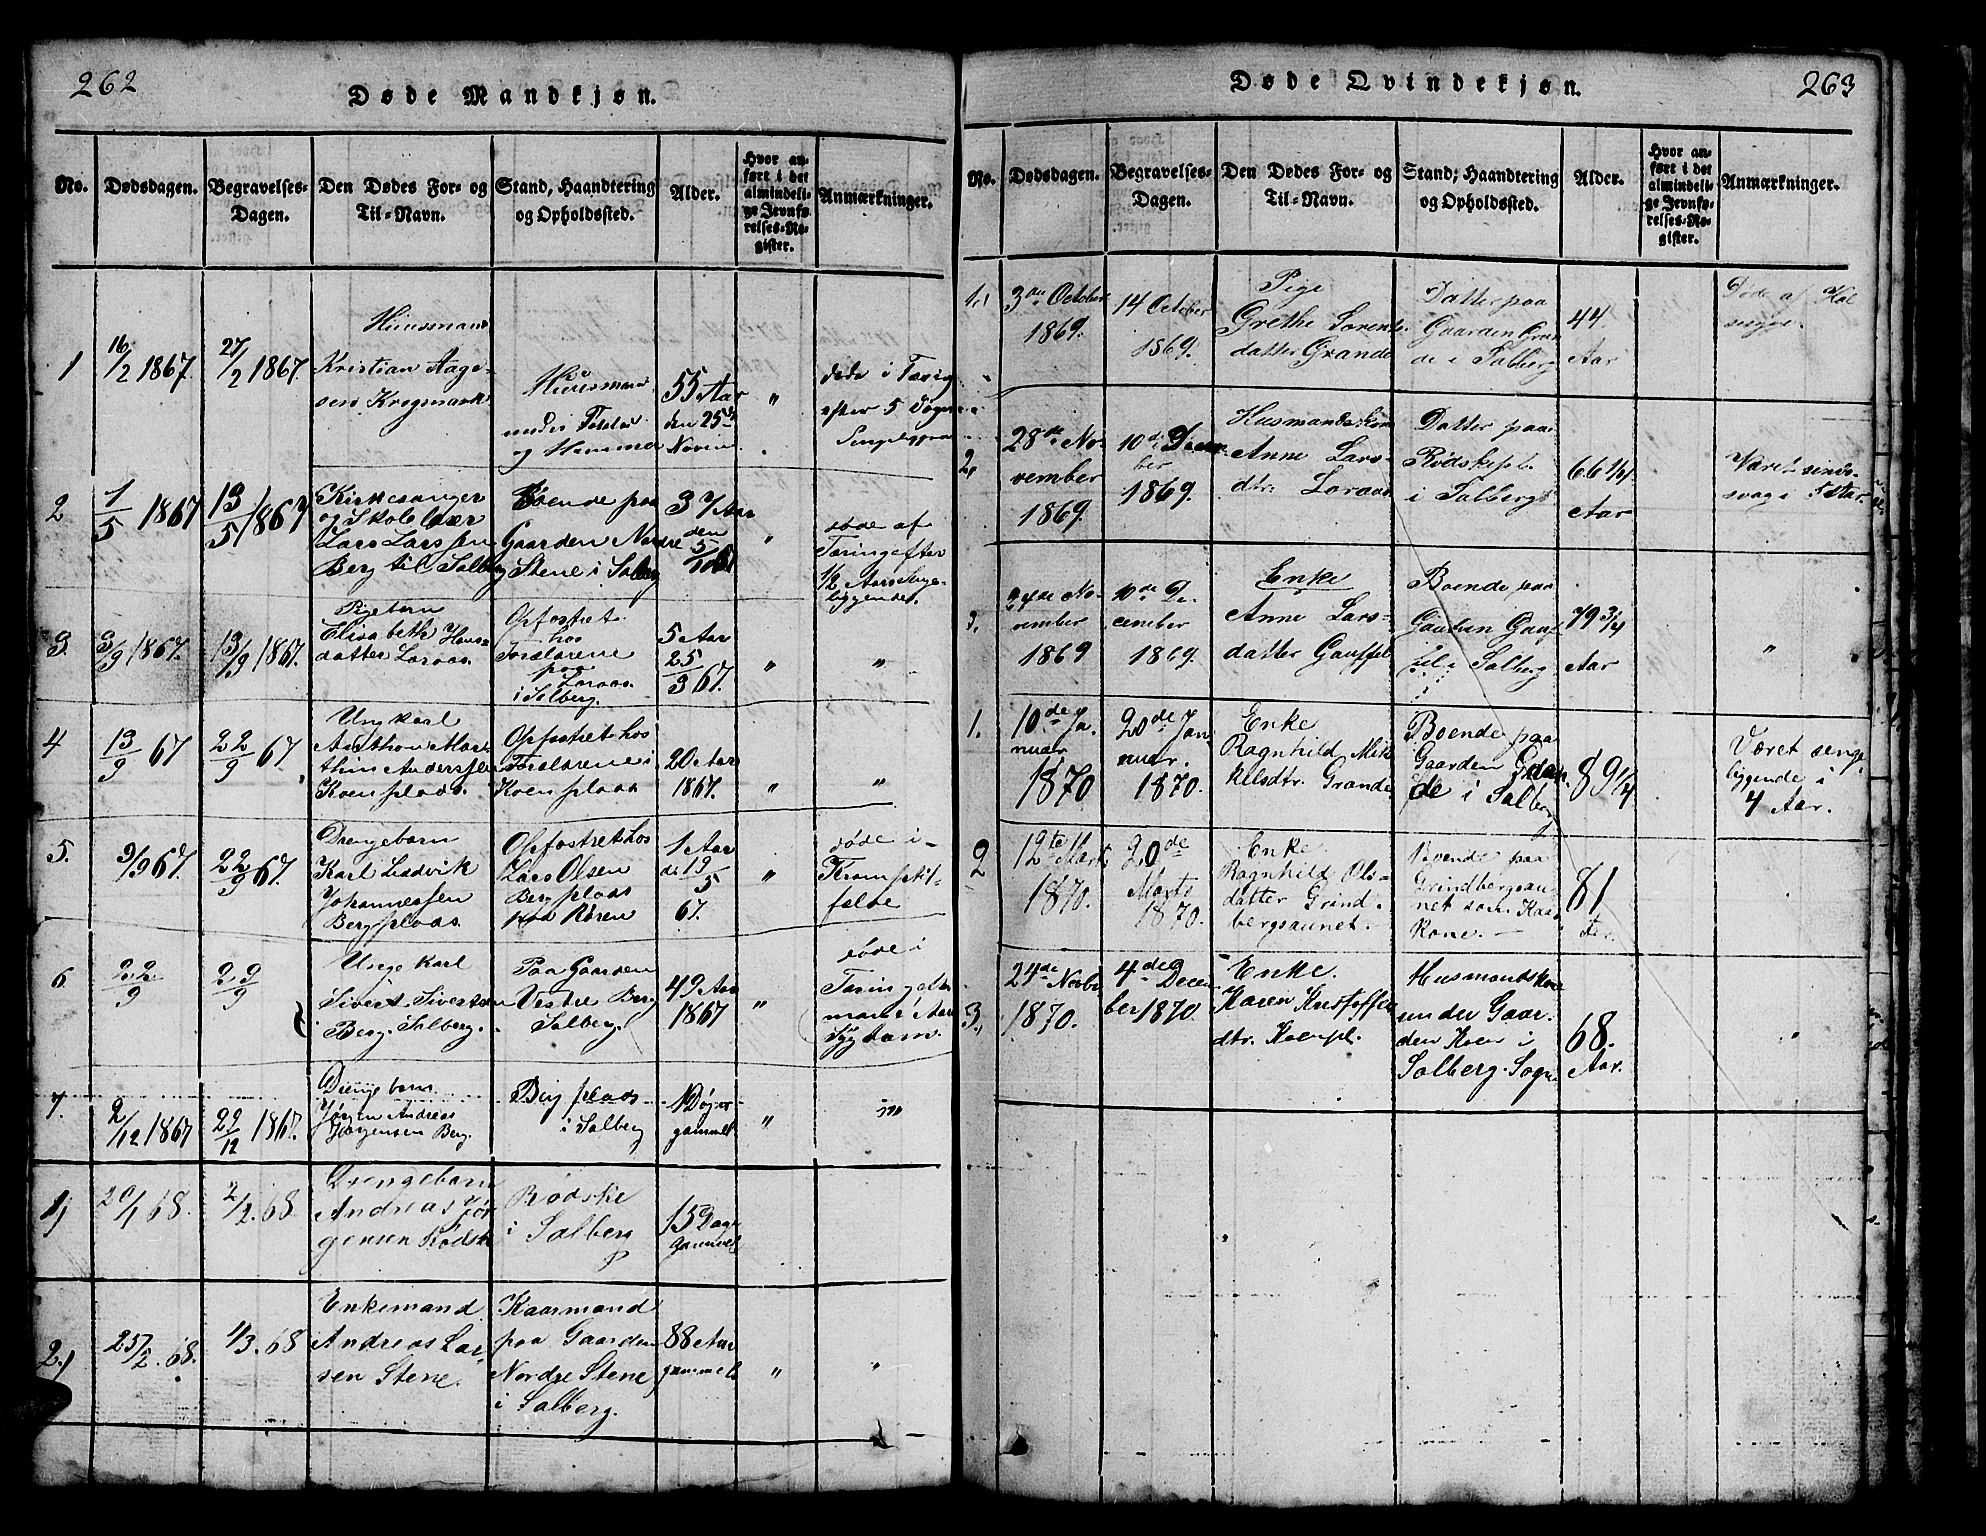 262
Døde Mandkjøn.
No.
Dødsdagen.
Begravelses-
Dagen.
Den Dødes For- og
Til-Navn.
Stand, Haandtering
og Opholdssted.
Alder.
Hvor an-
ført i det
almindeli-
ge Jevnfø-
relses-Re-
gister.
Anmærkninger.
1
16/2 1867
27/2 1867.
Huusmand
Kristian Aage-
sen Krogmark
Huusmand
under
og Hammer
55 Aar
den 25de
Novem
"
døde i Tæring
efter 5 Døgns
2
1/5 1867
13/5 1867
Kirkesanger
og Skolelær
Lars Larssen
Berg til Salberg
Boende paa
Gaarden Nordre
Stene i Salberg
37 Aar
den
5/5
"
døde af
Tæring efter
1/2 Aars Senge-
liggende.
3.
3/9 1867.
13/9 1867.
Pigebarn
Elisabeth Hans-
datter Loraas
Opfostret
hos
Forældrene
paa
Loraas
i Salberg.
5 Aar
25
3 67.
"
"
4
13/9 67
22/9 67
Ungkarl
Anthon Mar-
thin Anderssen
Koenplads.
Opfostret hos
Forældrene i
Koenplads
20 Aar
1867.
"
"
5.
9/9 67.
22/9 67.
Drengebarn
Karl Ludvik
Johannessen
Bergplads.
Opfostret hos
Lars Olsen
Bergplads
paa Røren
1 Aar
d: 19/5
67.
"
døde i
Krampetil-
fælde
6
22/9
29/9
Unge Karl
Sivert Sivertsen
Berg. Salberg.
Paa Gaarden
Vestre Berg
Salberg.
49 Aar
1867
"
døde i
7.
2/12 1867
22/12 1867.
Drengebarn
Jørgen Andreas
Jørgensen Berg.
Berg plads
i Salberg
1 Døgn
gammel
"
"
1)
29/1 68.
2/2. 68
Drengebarn
Andreas Jør-
gensen Rødsk
Rødske
i Salberg
15 Dage
gammel
2.)
25/2. 68.
4/3. 68
Enkemand
Andreas Lar-
sen Stene.
Kaarmand
paa Gaarden
Nordre Stene
i Salberg.
88 Aar
gammel
"
"
Døde Qvindekjøn.
263
No.
Dødsdagen.
Begravelses-
Dagen.
Den Dødes For- og
Til-Navn.
Stand, Haandtering
og Opholdssted.
Alder.
Hvor an-
ført i det
almindeli-
ge Jevnfø-
relses-Re-
gister.
Anmærkninger.
1.
3die October
1869.
14 October
1869.
Pige
Grethe Sorents-
datter Grande
Datter paa
Gaarden Gran
de i Salberg
44.
Aar
Døde af Hal
sesyge.
2.
28de No-
vember
1869.
10de Decem-
ber
1869.
Husmandskone
Anne Lars-
dtr. Loraas
Datter paa
Rødskepl.
i Salberg
66 1/4
Aar
Været sinds-
svag i
3.
No-
vember
1869
10de De-
cember
1869.
Enke
Anne Lars-
datter Gausfel
Boende paa
i Salberg
79 3/4
Aar
"
1.
10de Ja-
nuar
1870
20de Jan-
nuar.
1870.
Enke
Ragnhild Mik
kelsdtr. Grande
Boende paa
Gaarden Gran
de i Salberg
89 1/4
Været senge
liggende i
4 Aar.
2
12te Marts
1870.
20de
Marts
1870.
Enke
Ragnhild Ols-
datter Grind-
bergsaunet.
Boende paa
Grindbergsau-
net som Kaar
Kone.
81
3.
24de Novbr
1870.
4de Decem
ber 1870.
Enke.
Karen Kristoffer
dtr. Koenpl.
Husmandskone
under Gaar-
den Koen i
Salberg Sogn
68.
Aar.
"